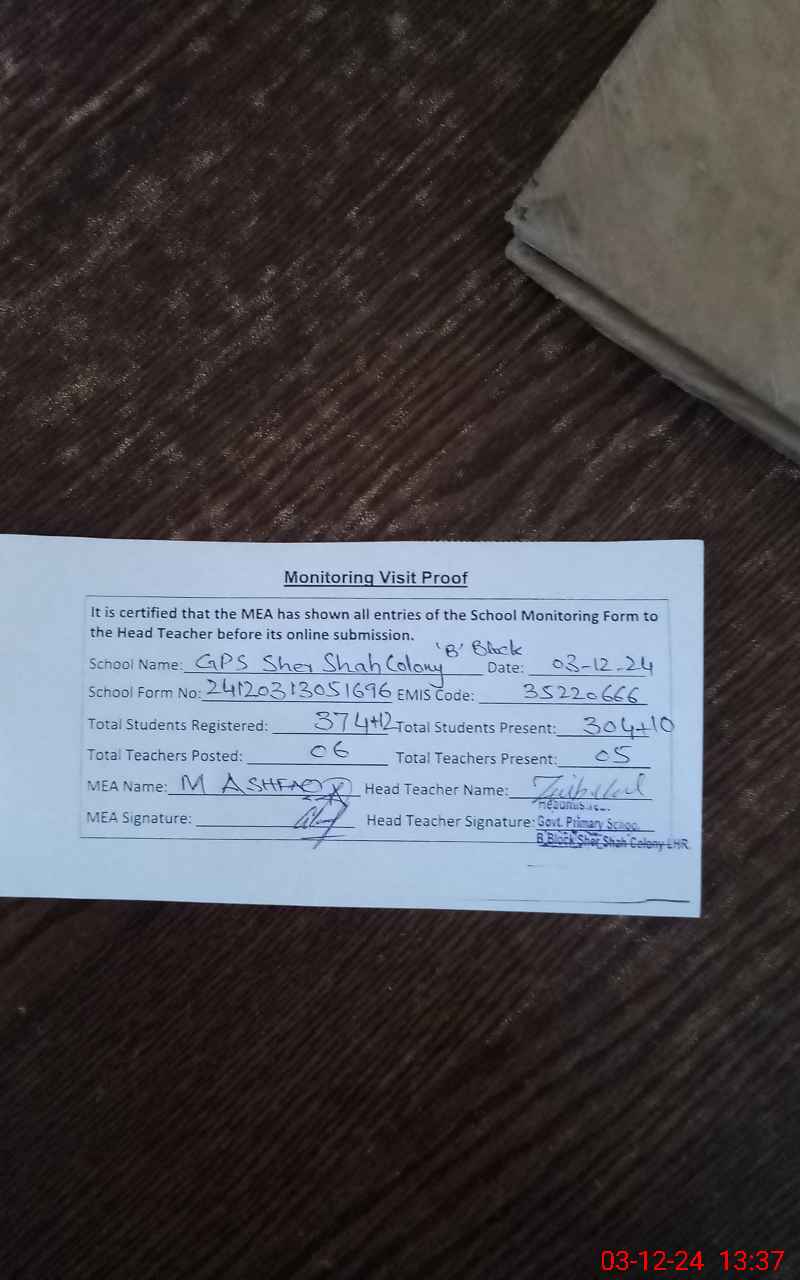 Monitoring Visit Proof
It is certified that the MEA has shown all entries of the School Monitoring Form to
the Head Teacher before its online submission.
School Name: GPS Sher Shah Colony 'B' Block Date: 03-12-24
School Form No: 24120313051696 EMIS Code: 35220666
Total Students Registered: 374+12 Total Students Present: 304+10
Total Teachers Posted: 06 Total Teachers Present: 05
MEA Name: M ASHFAQ Head Teacher Name:
MEA Signature: Head Teacher Signature:
Govt. Primary School
B Block Sher Shah Colony LHR.
03-12-24 13:37